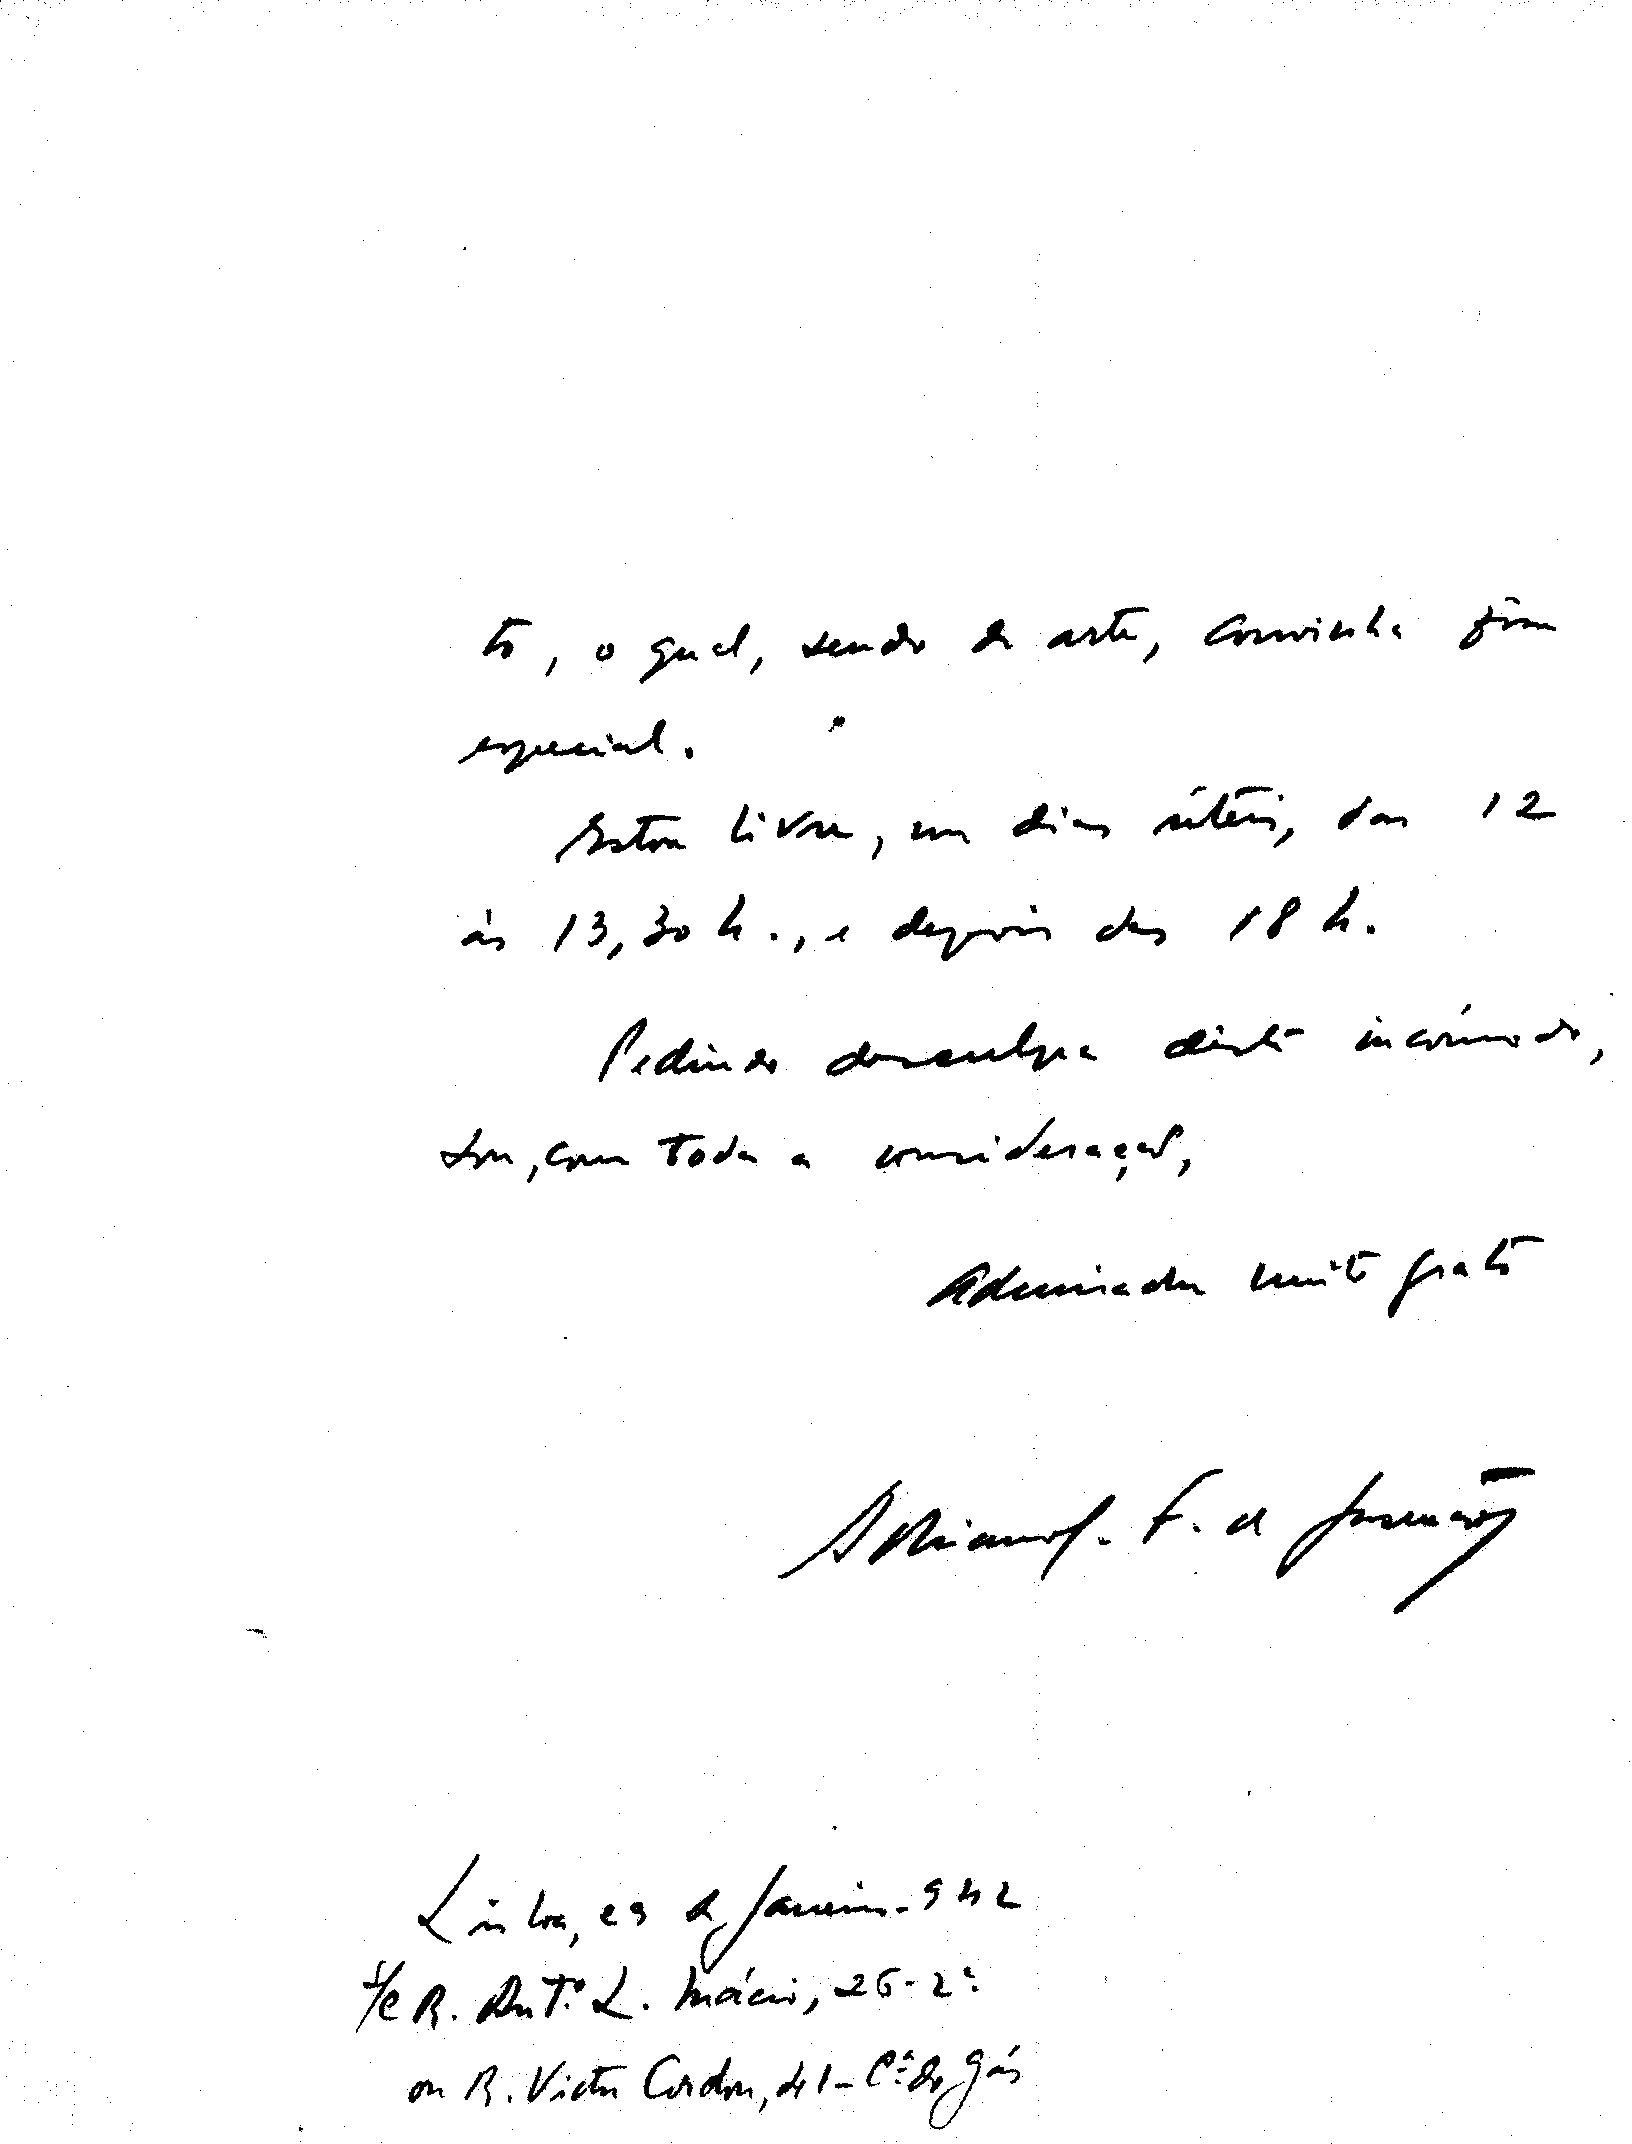 to, o qual, sendo de arte, convinha fôsse
especial.
Estou livre, em dias úteis, das 12
às 13,30 h., e depois das 18 h.
Pedindo desculpa dêste incómodo,
sou, com toda a consideração,
Admirador muito grato
F. de Gusmão
Lisboa, e 9 de Janeiro-942
R. Antº. L. Inácio, 26-2º.
ou R. Victor Cordon, - Cª. do Gás